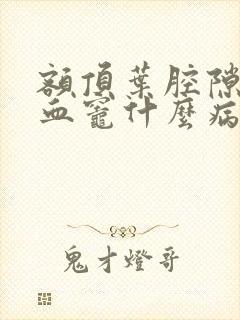 額頂葉腔隙
血竈什麼病
鬼才燈哥